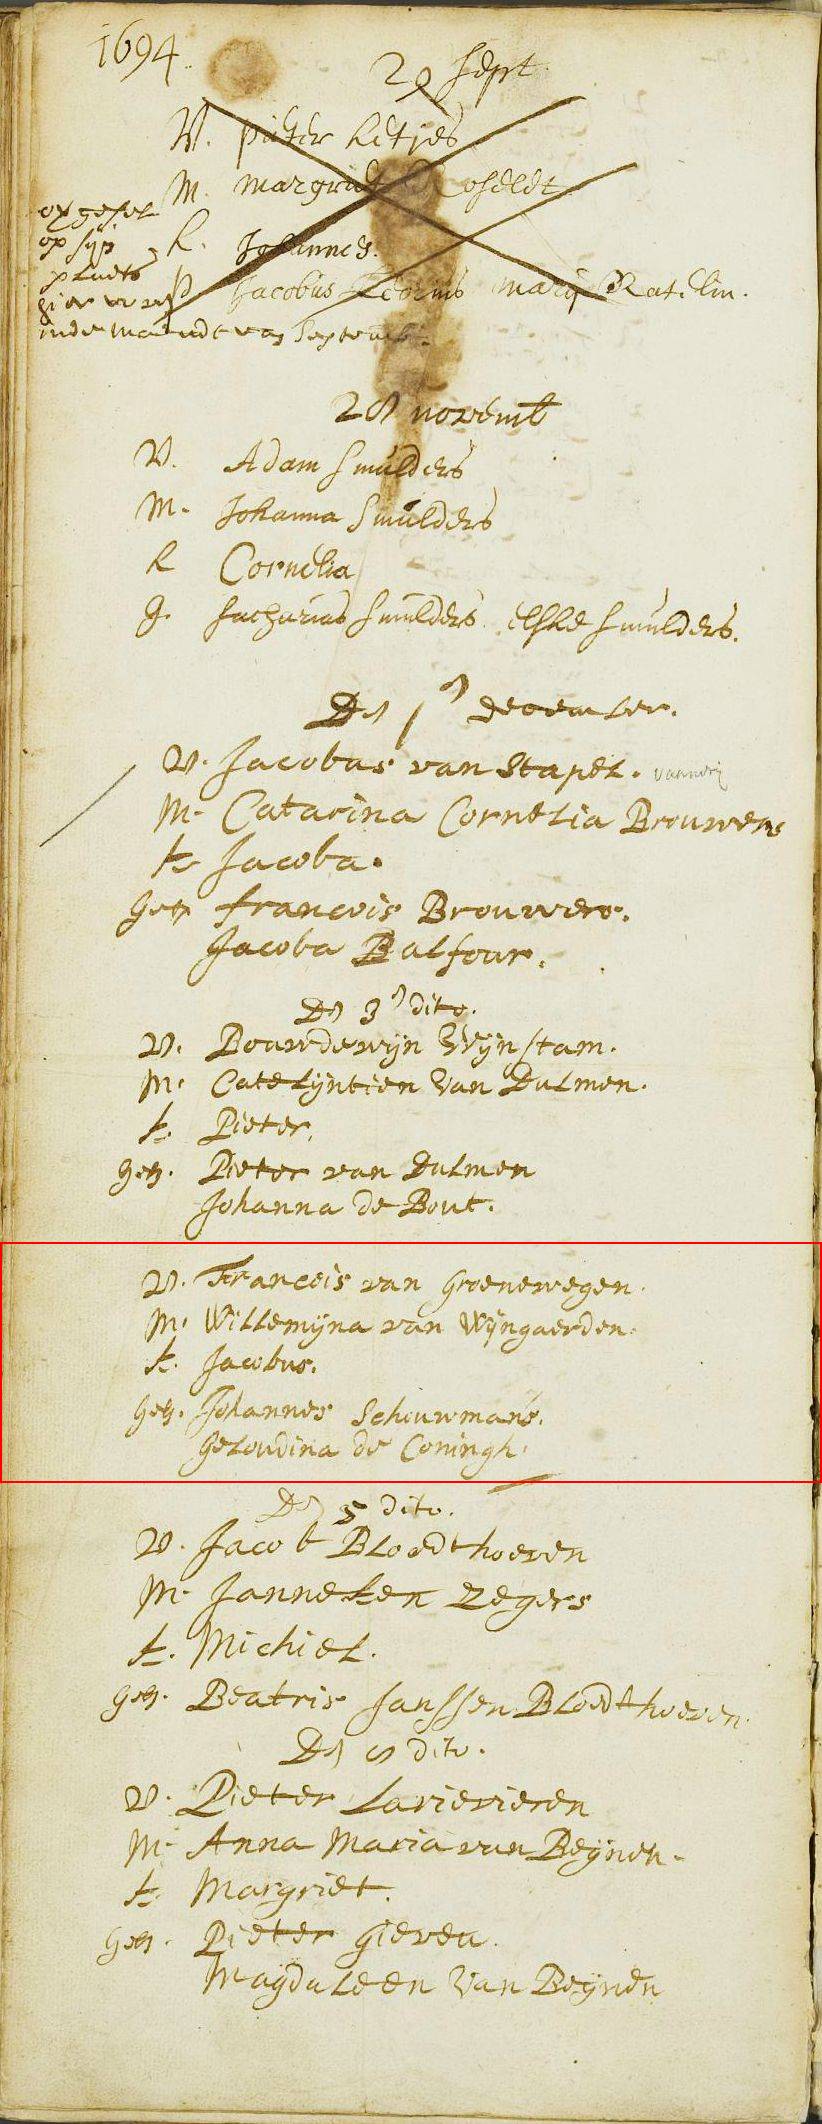 1694
29 sept
V. pieter Ketjes
M. margriet Roseldt
opgestel
op syn
plaets
hier voren
inde maendt van September
K. Johannes.
Jacobus mary Catelin.
28 novemb
V. Adam Smulders
M. Johanna Smulders
K Cornelia
G. Sacharias Smulders elske Smulders.
Den 1en december.
V. Jacobus van Stapel.
M. Catarina Cornelia Brouwers
k Jacoba.
get francois Brouwers.
Jacoba Balfour.
Den 3en dito.
V. Bouwdewijn Wijnstam.
M. Catelijntien van Dulmen.
k. Pieter.
get. Pieter van Dulmen
Johanna de Bout.
V. Francois van Groenewegen.
M. Willemijna van Wijngaerden.
k. Jacobus.
get. Johannes Schouwmans.
Geloudina de Coningh.
Den 5 dito.
V. Jacob Bloedthoeven
M. Janneken Zegers
k. Michiel.
get. Beatris Janssen Bloedthoeven.
Den 8 dito.
V. Pieter Larievieren
M. Anna Maria van Beynen.
k. Margriet.
get. Pieter gieven.
Magdaleen van Beynen